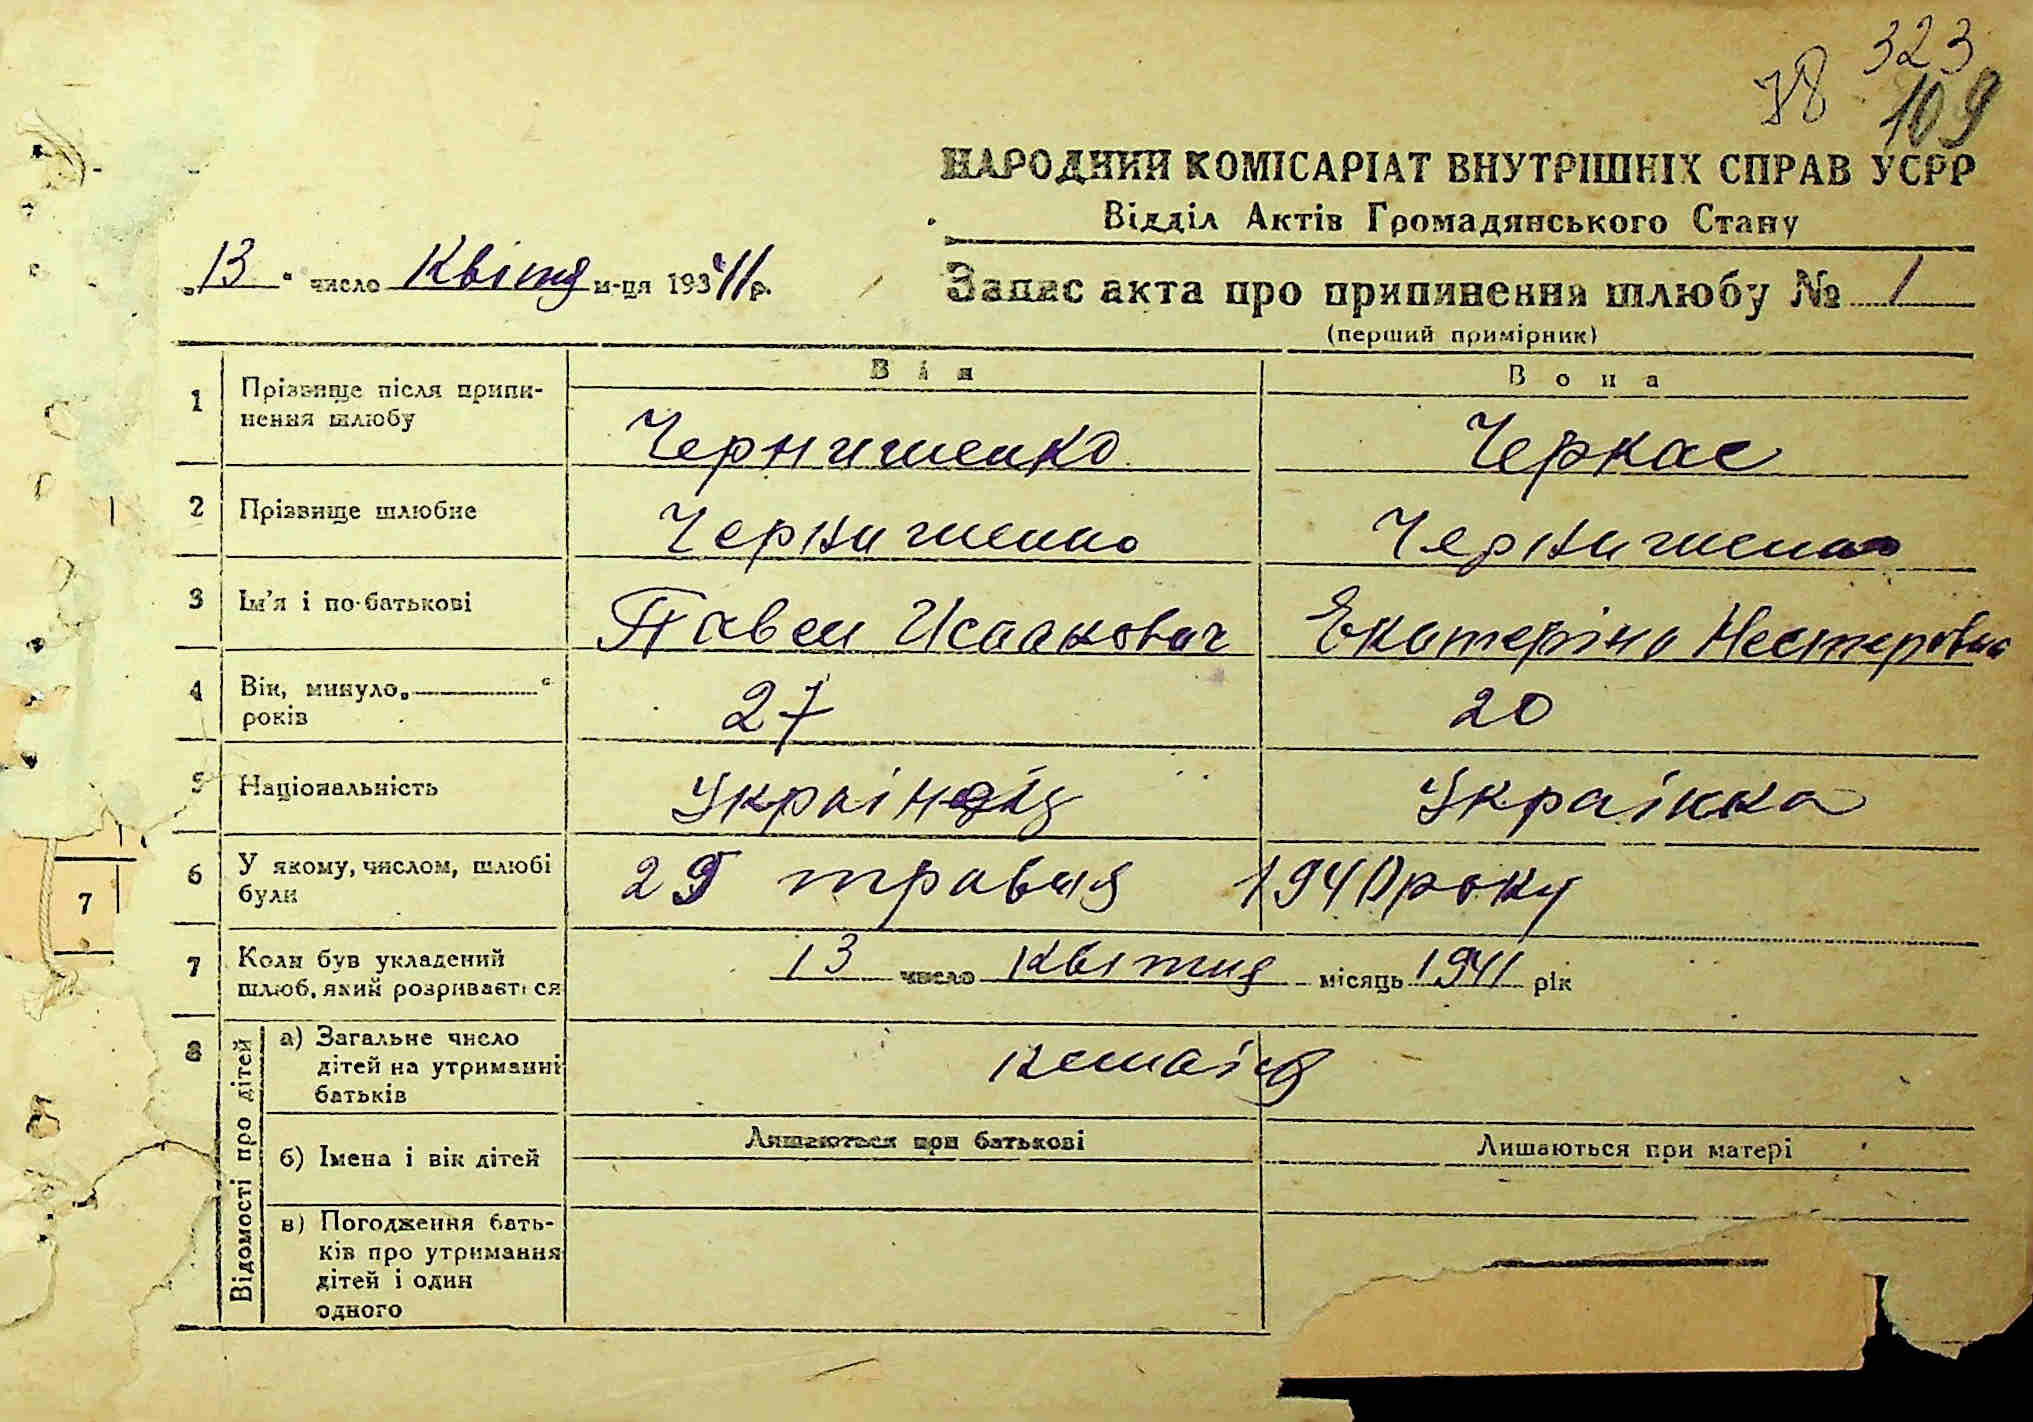 323
78 109
НАРОДНИЙ КОМІСАРІАТ ВНУТРІШНІХ СПРАВ УСРР
Відділ Актів Громадянського Стану
„13“ число Квітня м-ця 1941 р.
Запис акта про припинення шлюбу № 1
(перший примірник)
Він Вона
1 Прізвище після припи-
нення шлюбу Чернишенко Черкас
2 Прізвище шлюбне Чернишенко Чернишенко
3 Ім'я і по-батькові Павел Исаакович Екатеріна Нестеровна
4 Вік, минуло „ “
років 27 20
5 Національність Украінець Украінка
6 У якому, числом, шлюбі
були 29 травня 1940 року
7 Коли був укладений
шлюб, який розривається 13 число Квітня місяць 1941 рік
8 Відомості про дітей
а) Загальне число
дітей на утриманні
батьків немаія
Лишаються при батькові Лишаються при матері
б) Імена і вік дітей
в) Погодження бать-
ків про утримання
дітей і один
одного
7